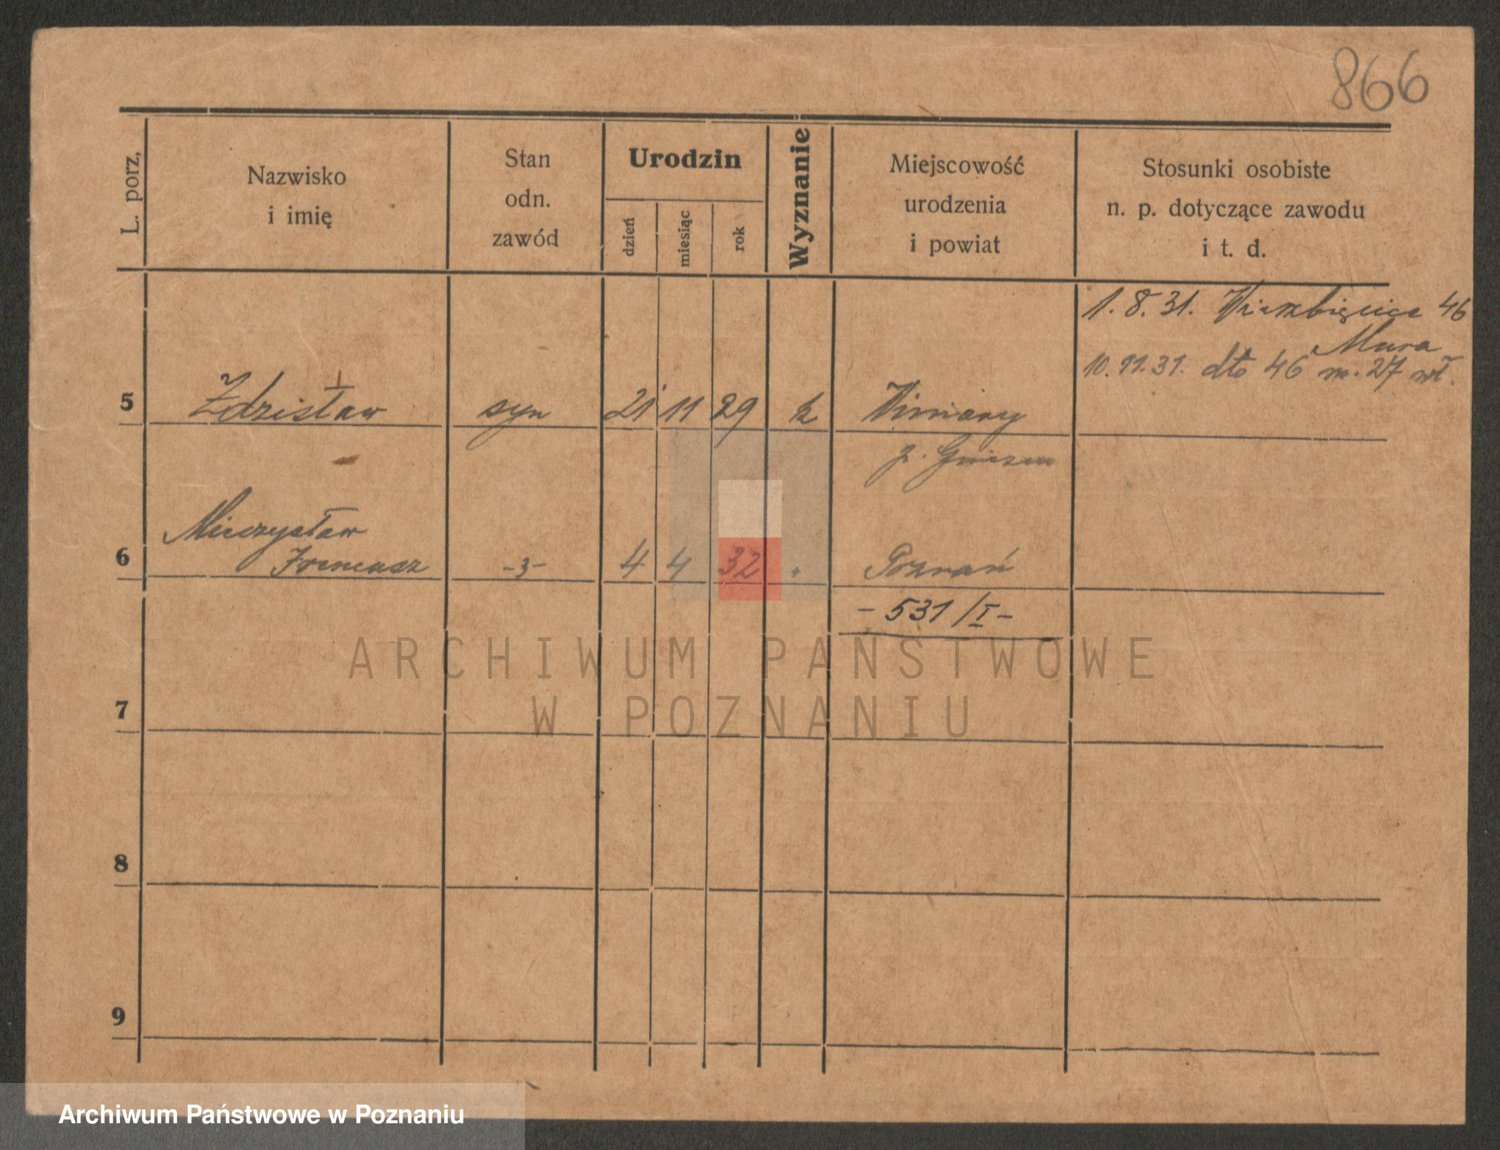 866
L. porz.
Nazwisko
i imię
Stan
odn.
zawód
Urodzin
dzień
miesiąc
rok
Wyznanie
Miejscowość
urodzenia
i powiat
Stosunki osobiste
n. p. dotyczące zawodu
i t. d.
1. 8. 31. 46
10. 11. 31. dto 46 m. 27
5 Zdzisław syn 21 11 29 k Winiary
p.
Mieczysław
6 Ireneusz -3- 4 4 32 Poznań
- 531/I -
7
8
9
ARCHIWUM PAŃSTWOWE
W POZNANIU
Archiwum Państwowe w Poznaniu